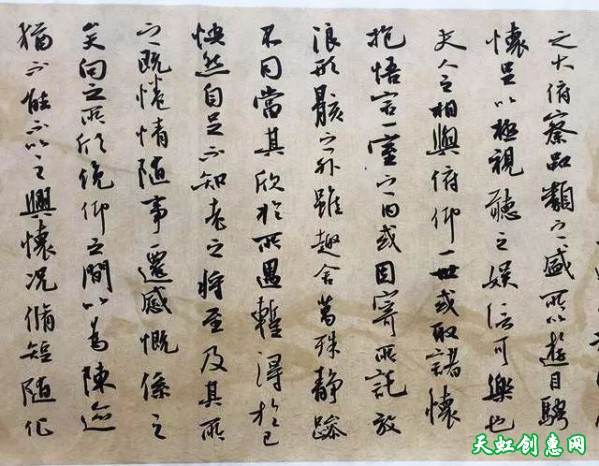 之大俯察品類之盛所以遊目騁
懷足以極視聽之娛信可樂也
夫人之相與俯仰一世或取諸懷
抱悟言一室之內或因寄所託放
浪形骸之外雖趣舍萬殊靜躁
不同當其欣於所遇暫得於己
怏然自足不知老之將至及其所
之既惓情隨事遷感慨係之
矣向之所欣俛仰之間以為陳迹
猶不能不以之興懷況脩短隨化
天虹创惠网